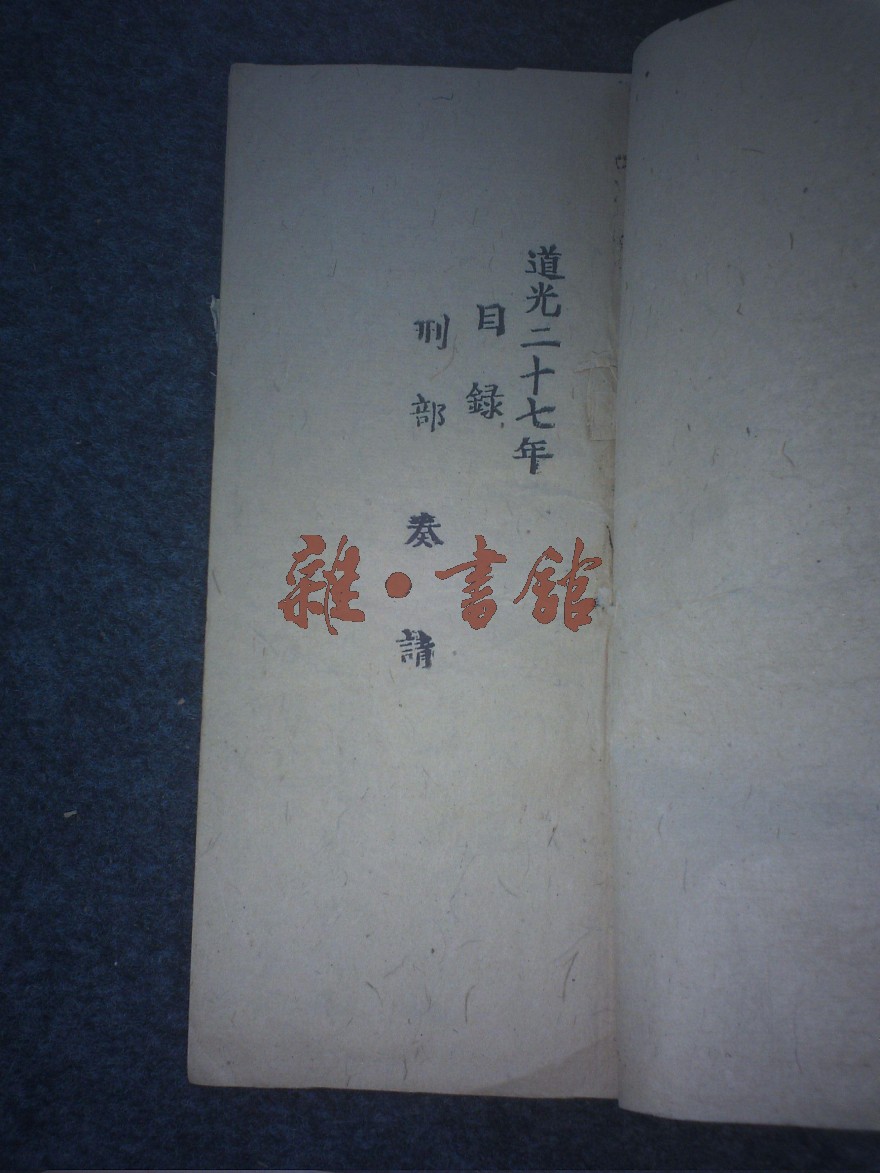 道光二十七年
目錄
刑部奏請
雜·書館